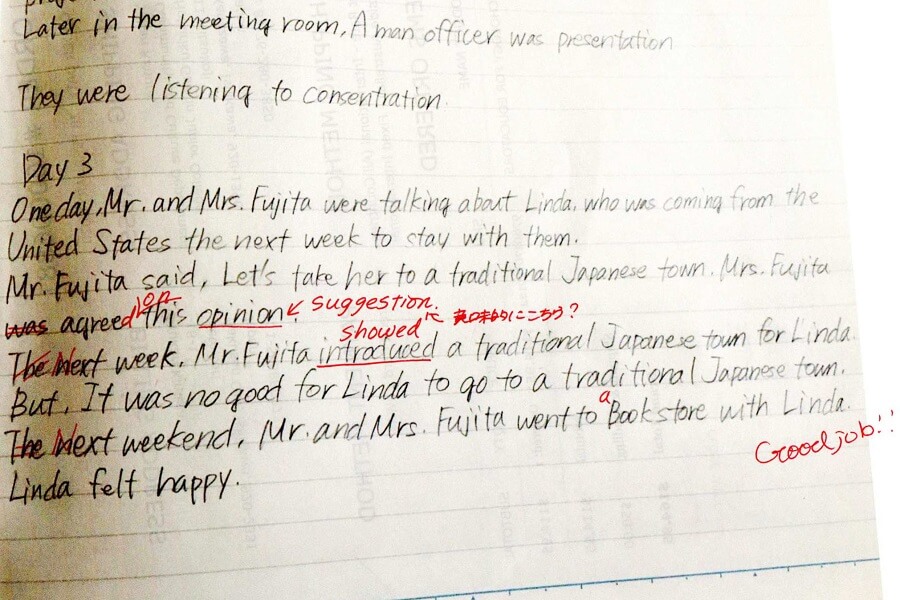 Later in the meeting room, A man officer was presentation
They were listening to consentration.
Day 3
One day, Mr. and Mrs. Fujita were talking about Linda, who was coming from the
United States the next week to stay with them.
Mr. Fujita said, Let's take her to a traditional Japanese town. Mrs. Fujita
on
was agreed this opinion. suggestion.
showed 意味的にこっち?
The Next week, Mr. Fujita introduced a traditional Japanese town for Linda.
But, It was no good for Linda to go to a traditional Japanese town.
a
The Next weekend, Mr. and Mrs. Fujita went to Book store with Linda.
Good job!!
Linda felt happy.